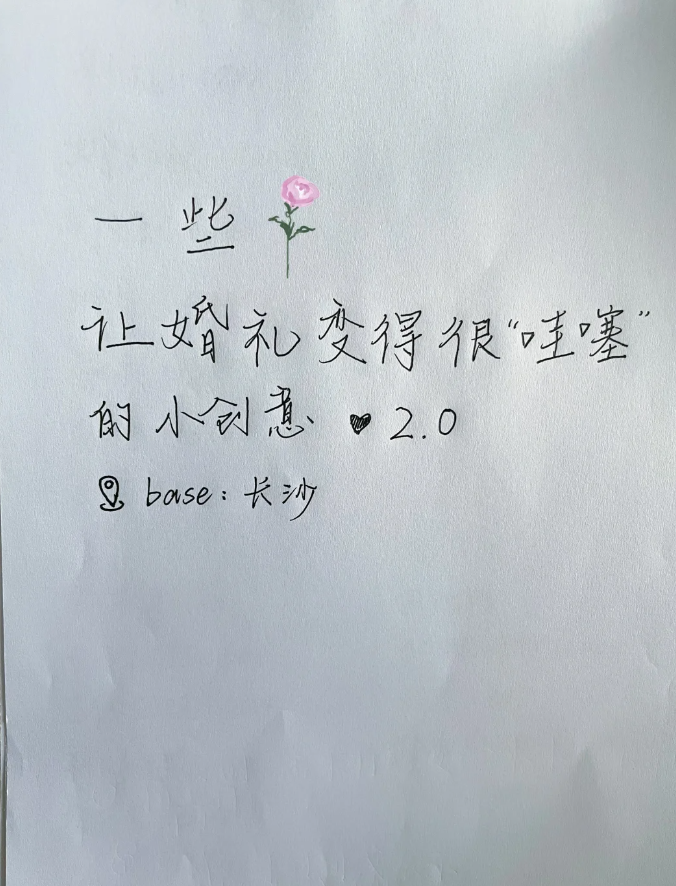 一些
让婚礼变得很“哇塞”
的小创意 ♥ 2.0
base：长沙